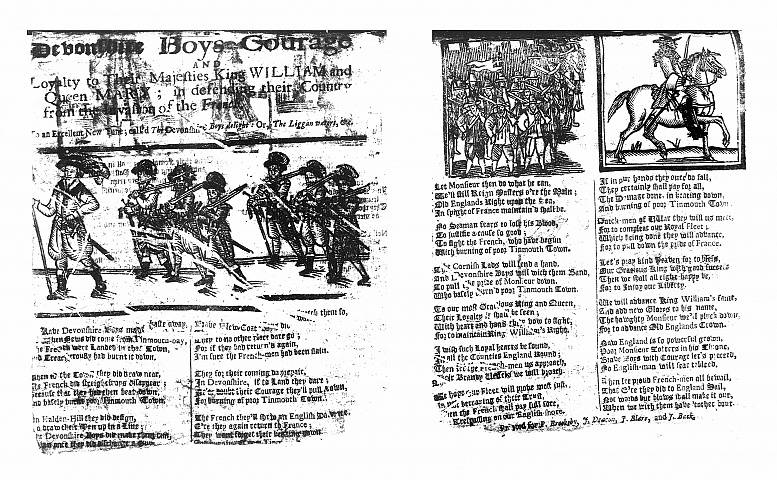 Devonshire Boys Courage
AND
Loyalty to Their Majesties King WILLIAM and
Queen MARY; in defending their Country
from the Invasion of the French.
an Excellent New Tune; call'd The Devonshire Boys delight: Or, The Liggan waters, &c.
Devonshire Boys made haste away,
When News did come from
French were Landed in that Town,
had burnt it down.
the Town they did draw near,
French did straight disappear;
Because that they had been beat down,
and basely burnt poor Tinmouth Town.
Halden-Hill they did design,
draw their Men up in a Line;
Devonshire Boys did make them run,
once they did discharge a Gun.
them so,
did
to no other place dare go;
For if they had return'd again
I'm sure the French-men had been slain.
They for their coming
In Devonshire, if to Land they dare;
doubt their Courage they'll pull down,
For burning of poor Tinmouth Town.
The French they'll show an English
E're they again return to France;
They wont forget their burning down
Let Monsieur then do what he can,
We'll still Reign Masters o're the Main;
Old Englands Right upon the Sea,
In spight of France maintain'd shall be.
No Seaman fears to lose his Blood,
To justifie a cause so good;
To fight the French, who have begun
With burning of poor Tinmouth Town.
The Cornish Lads will lend a hand,
And Devonshire Boys will with them Band,
To pull the pride of Monsieur down,
Who basely burn'd poor Tinmouth Town.
To our most Gracious King and Queen,
Their Loyalty it shall be seen;
With heart and hand they vow to fight,
For to maintain King William's Right.
I wish such Loyal hearts be found,
In all the Counties England Round;
Then let the French-men us approach,
We hope our Fleet will make most just,
betraying of their Trust,
When the French shall pay full sore,
Trespassing on our English-shore.
If in our hands they once do fall,
They certainly shall pay for all,
The Damage done, in tearing down,
And burning of poor Tinmouth Town.
Dutch-men of War they will us meet,
For to compleat our Royal Fleet;
Which being done they will advance,
For to pull down the pride of France.
Let's pray kind Heaven for to bless,
Our Gracious King with good success
Then we shall all right happy be,
For to Enjoy our Liberty.
We will advance King William's fame,
And add new Glories to his name,
The haughty Monsieur we'll pluck down,
For to advance Old Englands Crown.
Now England is so powerful grown,
Poor Monsieur Totters in his Throne,
Brave Boys with Courage let's proceed,
No English-man will fear to bleed.
Then let proud French-men all bewail,
That E're they did to England Sail,
Not words but blows shall make it our,
When we with them have bother bout.
Printed for P. Brooksby, J. Deacon, J. Blare, and J. Back.